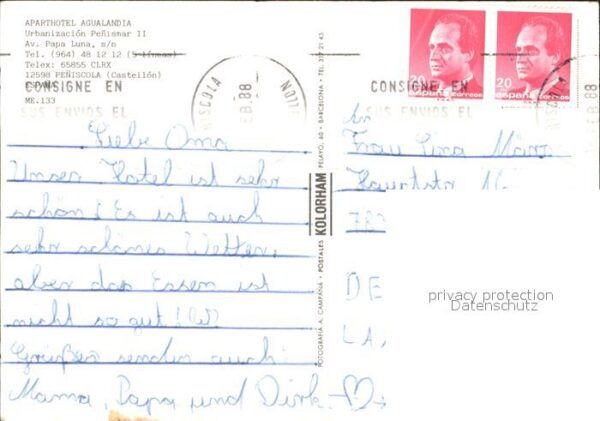 APARTHOTEL AGUALANDIA
Urbanización Peñismar II
Av. Papa Luna, s/n
Tel. (964) 48 12 12
Telex: 65855 CLRX
12598 PEÑISCOLA (Castellón)
ME.133
CONSIGNE EN
SUS ENVIOS EL
FEB.88
CONSIGNE EN
SUS ENVIOS EL
20
españa correos
20
españa correos
Liebe Oma
Unser Hotel ist sehr
schön! Es ist auch
sehr schönes Wetter.
aber das Essen ist
nicht so gut!
Grüße senden auch:
Mama, Papa und Dirk.
FOTOGRAFIA A. CAMPAÑA · POSTALES KOLORHAM PELAYO, 40 · BARCELONA · TEL. 317 21 43
An
Frau
Hauptstr
DE
privacy protection
Datenschutz